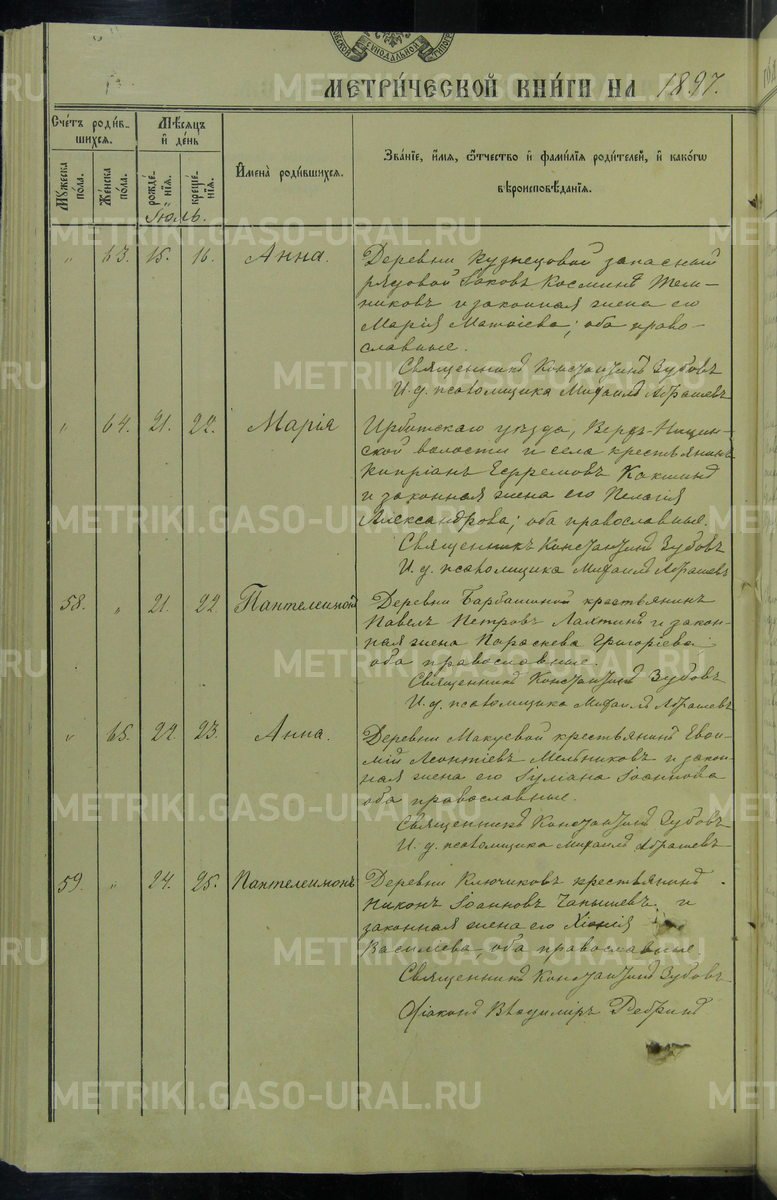 СУНОДАЛЬНОЙ
МЕТРИ́ЧЕСКОЙ КНИ́ГИ НА 1897.
Сче́тъ роди́в-
шихся.
Му́жеска
пола.
Же́нска
пола.
Мѣ́сяцъ
и҆ де́нь
рожде-
нїѧ.
креще-
нїѧ.
И҆мена̀ роди́вшихся.
Зва́нїе, и҆́мѧ, ѻ҆́тчество и҆ фами́лїѧ роди́телей, и҆ како́гѡ
вѣроисповѣ́данїѧ.
Іюль.
" 63. 15. 16. Анна. Деревни Кузнецовой запасный
рядовой Іаковъ Косминъ Мель-
никовъ и законная жена его
Марія Матѳіева; оба право-
славные.
Священникъ Константинъ Зубовъ
И. д. псаломщика Михаилъ Абрашевъ
" 64. 21. 22. Марія Ирбитскаго уѣзда, Верхъ-Ницин-
ской волости и села крестьянинъ
Кипріанъ Ефремовъ Кокшинъ
и законная жена его Пелагія
Александрова; оба православные.
Священникъ Константинъ Зубовъ
И. д. псаломщика Михаилъ Абрашевъ
58. " 21. 22 Пантелеимонъ Деревни крестьянинъ
Павелъ Петровъ Лаптинъ и закон-
ная жена Параскева Григоріева
оба православные.
Священникъ Константинъ Зубовъ
И. д. псаломщика Михаилъ Абрашевъ
" 65. 22. 23. Анна. Деревни Макуевой крестьянинъ Евѳи-
мій Леонтіевъ Мельниковъ и закон-
ная жена его Іуліана Іоаннова
оба православные.
Священникъ Константинъ Зубовъ
И. д. псаломщика Михаилъ Абрашевъ
59. " 24. 25. Пантелеимонъ Деревни Ключиковъ крестьянинъ
Никонъ Іоанновъ Чапышевъ и
законная жена его Хіонія
Васильева, оба православные
Священникъ Константинъ Зубовъ
Діаконъ Владиміръ Ребринъ
METRIKI.GASO-URAL.RU